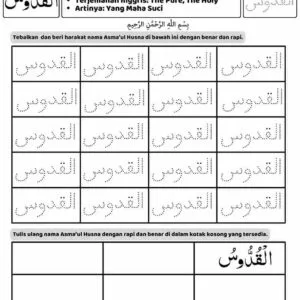 القدوس : Terjemahan Inggris: The Pure, The Holy
Artinya: Yang Maha Suci
بِسْمِ اللَّهِ الرَّحْمَنِ الرَّحِيمِ
Tebalkan dan beri harakat nama Asma'ul Husna di bawah ini dengan benar dan rapi.
القدوس القدوس القدوس القدوس
القدوس القدوس القدوس القدوس
القدوس القدوس القدوس القدوس
القدوس القدوس القدوس القدوس
القدوس القدوس القدوس القدوس
Tulis ulang nama Asma'ul Husna dengan rapi dan benar di dalam kotak kosong yang tersedia.
الْقُدُّوسُ